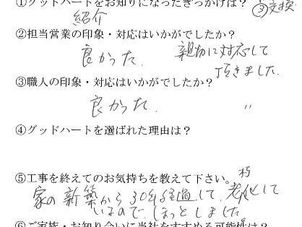 ①グッドハートをお知りになったきっかけは？
紹介
②担当営業の印象・対応はいかがでしたか？
良かった 親切に対応して
頂きました
③職人の印象・対応はいかがでしたか？
良かった 〃
④グッドハートを選ばれた理由は？
⑤工事を終えてのお気持ちを教えて下さい。
家の新築から30年経過して、老朽化して
いるので ほっとしました
⑥ご家族・お知り合いに当社をすすめる可能性は？